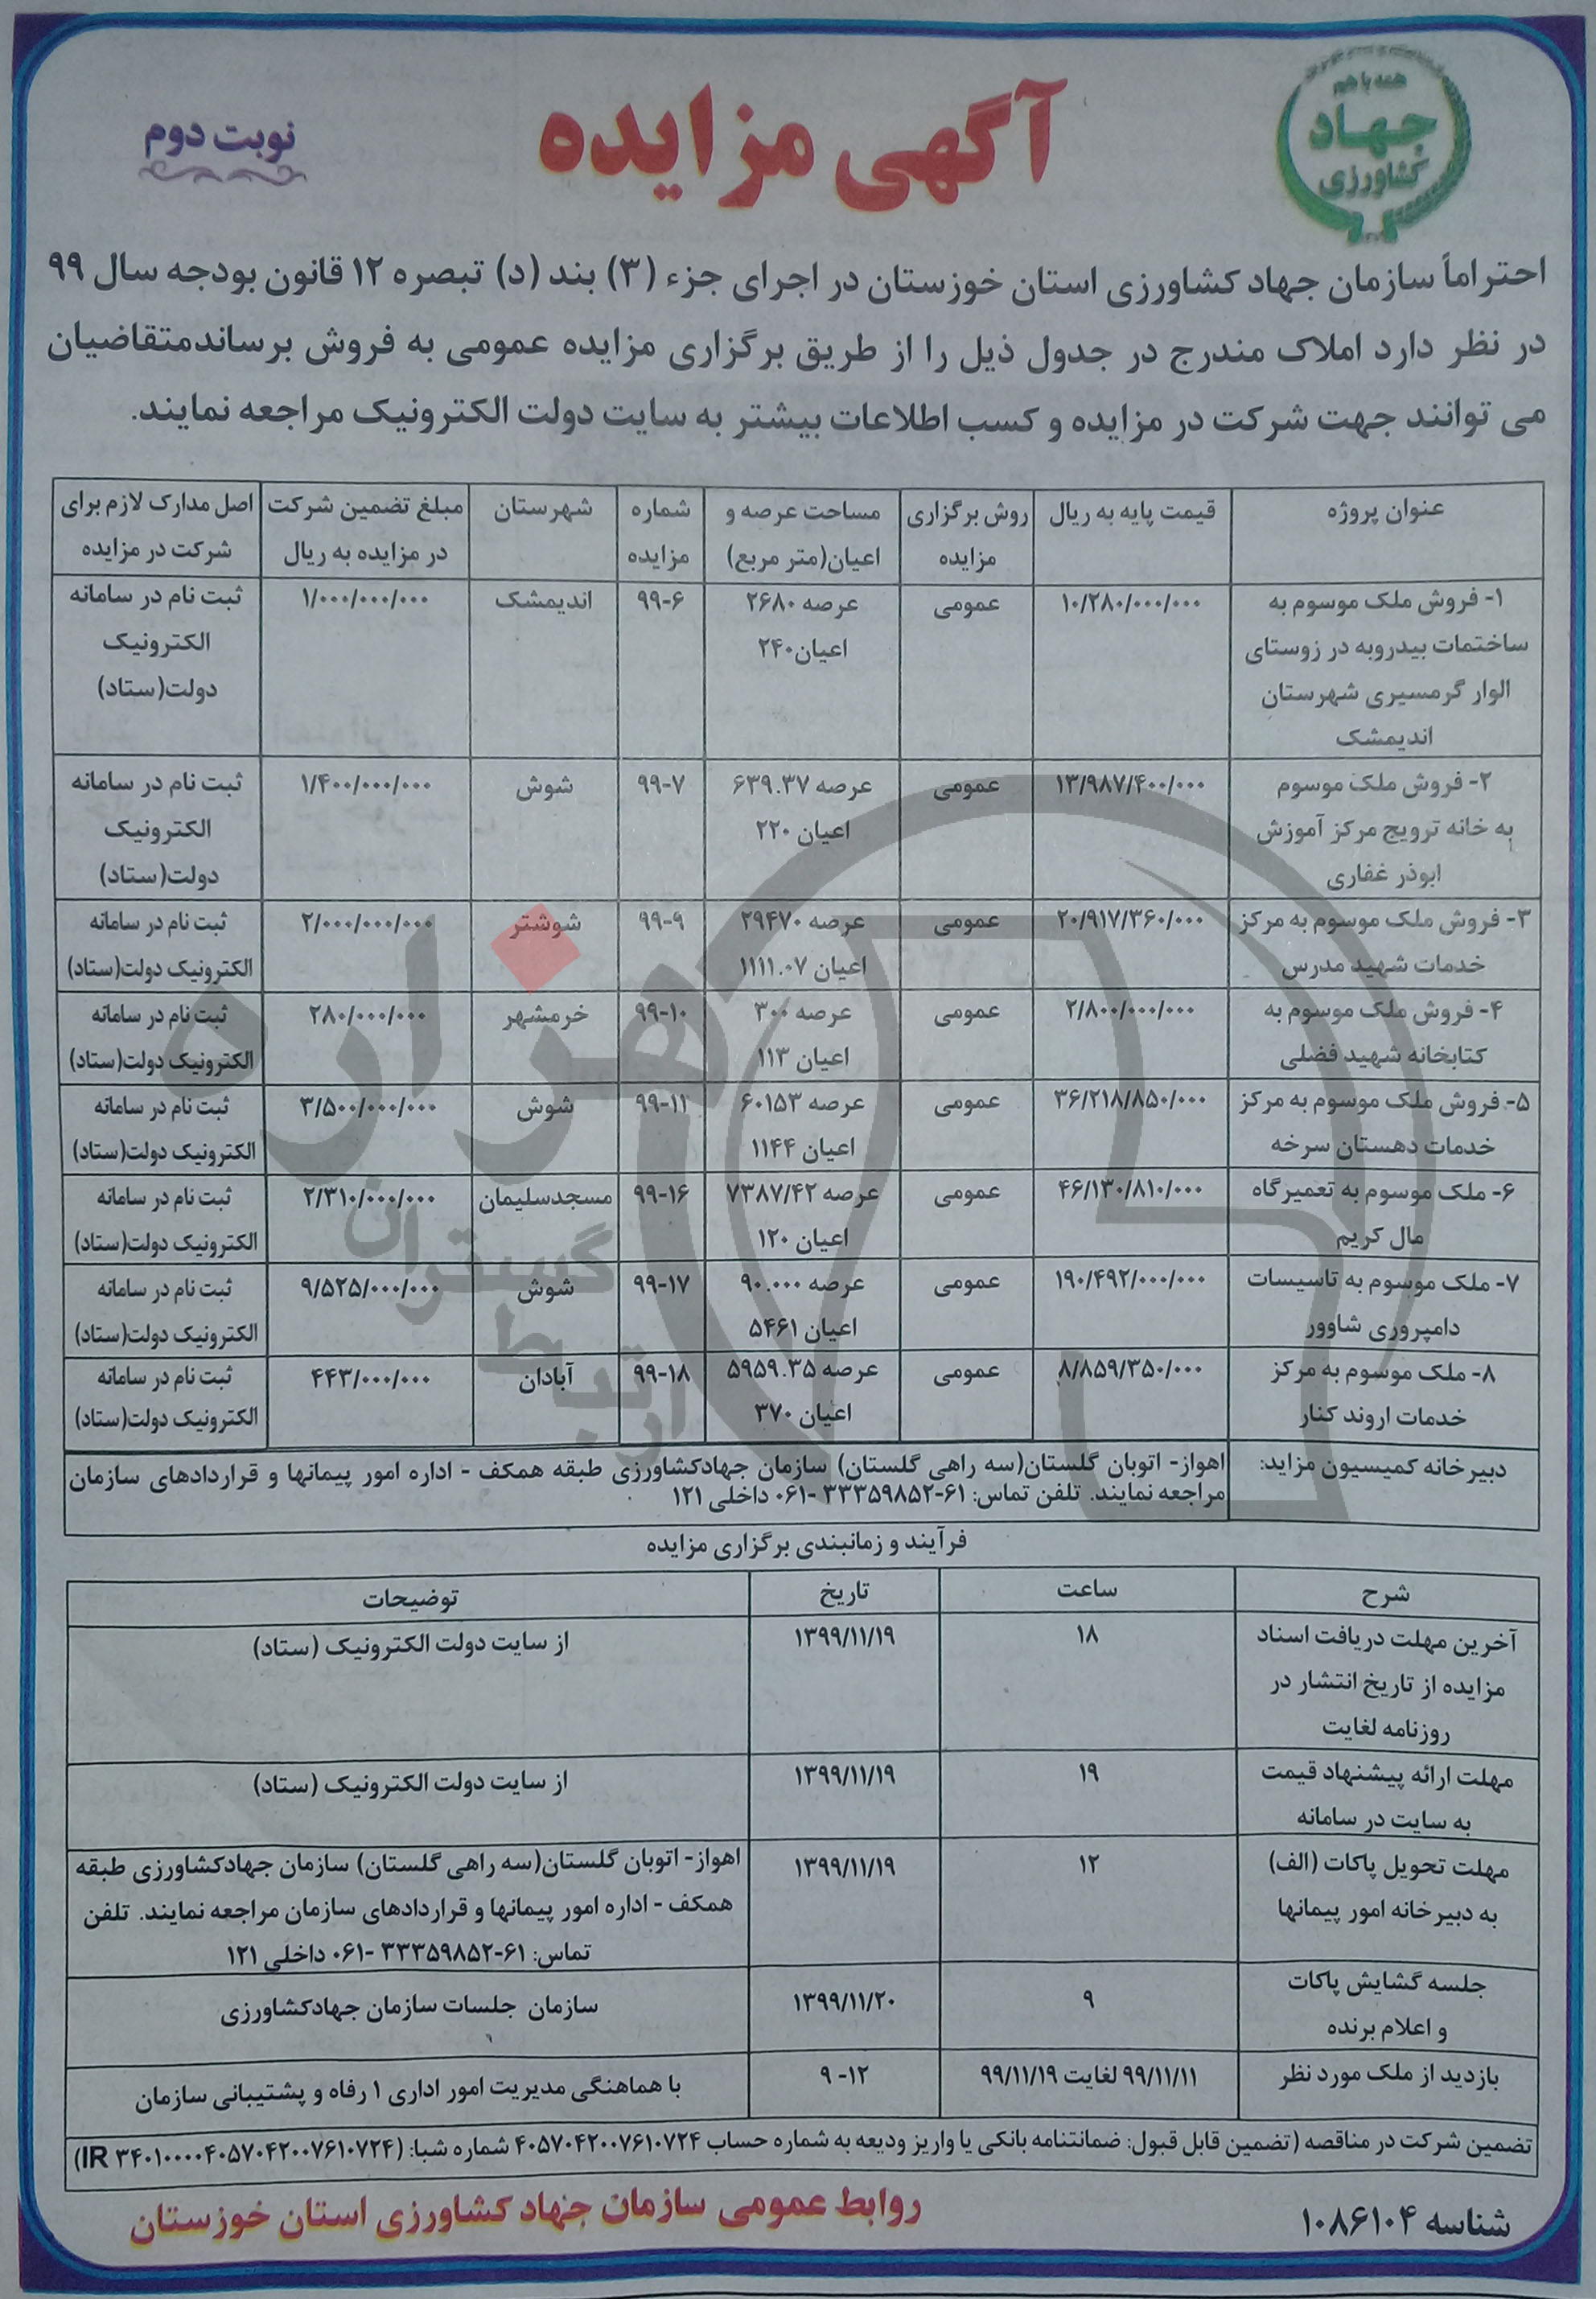 همه با هم
جهاد
کشاورزی
آگهی مزایده
نوبت دوم
احتراماً سازمان جهاد کشاورزی استان خوزستان در اجرای جزء (۳) بند (د) تبصره ۱۲ قانون بودجه سال ۹۹
در نظر دارد املاک مندرج در جدول ذیل را از طریق برگزاری مزایده عمومی به فروش برساندمتقاضیان
می توانند جهت شرکت در مزایده و کسب اطلاعات بیشتر به سایت دولت الکترونیک مراجعه نمایند.
عنوان پروژه
قیمت پایه به ریال
روش برگزاری
مزایده
مساحت عرصه و
اعیان(متر مربع)
شماره
مزایده
شهرستان
مبلغ تضمین شرکت
در مزایده به ریال
اصل مدارک لازم برای
شرکت در مزایده
۱- فروش ملک موسوم به
ساختمات بیدروبه در زوستای
الوار گرمسیری شهرستان
اندیمشک
۱۰/۲۸۰/۰۰۰/۰۰۰
عمومی
عرصه ۲۶۸۰
اعیان۲۴۰
۹۹-۶
اندیمشک
۱/۰۰۰/۰۰۰/۰۰۰
ثبت نام در سامانه
الکترونیک
دولت(ستاد)
۲- فروش ملک موسوم
به خانه ترویج مرکز آموزش
ابوذر غفاری
۱۳/۹۸۷/۴۰۰/۰۰۰
عمومی
عرصه ۶۳۹.۳۷
اعیان ۲۲۰
۹۹-۷
شوش
۱/۴۰۰/۰۰۰/۰۰۰
ثبت نام در سامانه
الکترونیک
دولت(ستاد)
۳- فروش ملک موسوم به مرکز
خدمات شهید مدرس
۲۰/۹۱۷/۳۶۰/۰۰۰
عمومی
عرصه ۲۹۴۷۰
اعیان ۱۱۱۱.۰۷
۹۹-۹
شوشتر
۲/۰۰۰/۰۰۰/۰۰۰
ثبت نام در سامانه
الکترونیک دولت(ستاد)
۴- فروش ملک موسوم به
کتابخانه شهید فضلی
۲/۸۰۰/۰۰۰/۰۰۰
عمومی
عرصه ۳۰۰
اعیان ۱۱۳
۹۹-۱۰
خرمشهر
۲۸۰/۰۰۰/۰۰۰
ثبت نام در سامانه
الکترونیک دولت(ستاد)
۵- فروش ملک موسوم به مرکز
خدمات دهستان سرخه
۳۶/۲۱۸/۸۵۰/۰۰۰
عمومی
عرصه ۶۰۱۵۳
اعیان ۱۱۴۴
۹۹-۱۱
شوش
۳/۵۰۰/۰۰۰/۰۰۰
ثبت نام در سامانه
الکترونیک دولت(ستاد)
۶- ملک موسوم به تعمیرگاه
مال کریم
۴۶/۱۳۰/۸۱۰/۰۰۰
عمومی
عرصه ۷۳۸۷/۴۲
اعیان ۱۲۰
۹۹-۱۶
مسجدسلیمان
۲/۳۱۰/۰۰۰/۰۰۰
ثبت نام در سامانه
الکترونیک دولت(ستاد)
۷- ملک موسوم به تاسیسات
دامپروری شاوور
۱۹۰/۴۹۲/۰۰۰/۰۰۰
عمومی
عرصه ۹۰.۰۰۰
اعیان ۵۴۶۱
۹۹-۱۷
شوش
۹/۵۲۵/۰۰۰/۰۰۰
ثبت نام در سامانه
الکترونیک دولت(ستاد)
۸- ملک موسوم به مرکز
خدمات اروند کنار
۸/۸۵۹/۳۵۰/۰۰۰
عمومی
عرصه ۵۹۵۹.۳۵
اعیان ۳۷۰
۹۹-۱۸
آبادان
۴۴۳/۰۰۰/۰۰۰
ثبت نام در سامانه
الکترونیک دولت(ستاد)
هزاره
ارتباط
گستران
دبیرخانه کمیسیون مزاید:
اهواز- اتوبان گلستان(سه راهی گلستان) سازمان جهادکشاورزی طبقه همکف - اداره امور پیمانها و قراردادهای سازمان
مراجعه نمایند. تلفن تماس: ۶۱-۳۳۳۵۹۸۵۲ -۰۶۱ داخلی ۱۲۱
فرآیند و زمانبندی برگزاری مزایده
شرح
ساعت
تاریخ
توضیحات
آخرین مهلت دریافت اسناد
مزایده از تاریخ انتشار در
روزنامه لغایت
۱۸
۱۳۹۹/۱۱/۱۹
از سایت دولت الکترونیک (ستاد)
مهلت ارائه پیشنهاد قیمت
به سایت در سامانه
۱۹
۱۳۹۹/۱۱/۱۹
از سایت دولت الکترونیک (ستاد)
مهلت تحویل پاکات (الف)
به دبیرخانه امور پیمانها
۱۲
۱۳۹۹/۱۱/۱۹
اهواز- اتوبان گلستان(سه راهی گلستان) سازمان جهادکشاورزی طبقه
همکف - اداره امور پیمانها و قراردادهای سازمان مراجعه نمایند. تلفن
تماس: ۶۱-۳۳۳۵۹۸۵۲ -۰۶۱ داخلی ۱۲۱
جلسه گشایش پاکات
و اعلام برنده
۹
۱۳۹۹/۱۱/۲۰
سازمان جلسات سازمان جهادکشاورزی
بازدید از ملک مورد نظر
۹۹/۱۱/۱۱ لغایت ۹۹/۱۱/۱۹
۹ -۱۲
با هماهنگی مدیریت امور اداری ۱ رفاه و پشتیبانی سازمان
تضمین شرکت در مناقصه (تضمین قابل قبول: ضمانتنامه بانکی یا واریز ودیعه به شماره حساب ۴۰۵۷۰۴۲۰۰۷۶۱۰۷۲۴ شماره شبا: (IR ۳۴۰۱۰۰۰۰۴۰۵۷۰۴۲۰۰۷۶۱۰۷۲۴)
شناسه ۱۰۸۶۱۰۴
روابط عمومی سازمان جهاد کشاورزی استان خوزستان